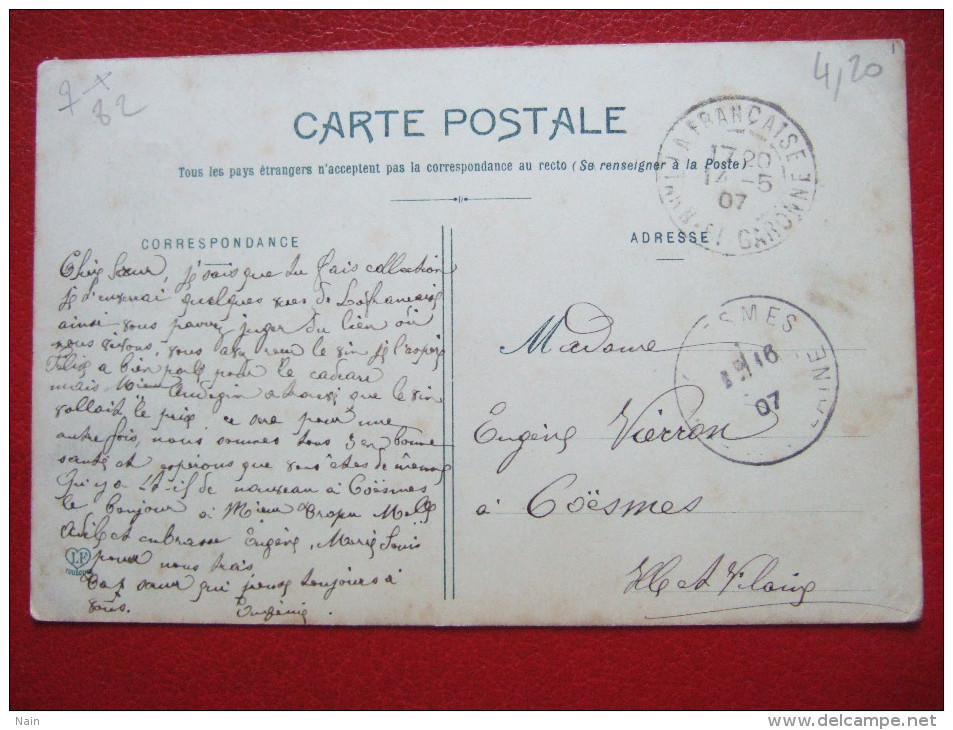 7 x
82
4,20
CARTE POSTALE
Tous les pays étrangers n'acceptent pas la correspondance au recto (Se renseigner à la Poste)
LAFRANÇAISE
17 20
14 -5
07
GARONNE
CORRESPONDANCE
ADRESSE
Chère Sœur, je sais que tu fais collection
je quelques vues de Lafrançaise
ainsi vous pouvez juger du lieu où
nous vivons, vous avez le vin je l'espère
a bien parlé pour le
mais que le vin
vallait le prix, ce pour une
autre fois, nous sommes tous 3 en bonne
santé et espérons que vous êtes de même
Qui y a t-il de nouveau à Coësmes
le bonjour à
et embrasse Eugène, Marie Louis
pour nous trois
sœur qui pense toujours à
vous. Eugénie.
J.F
toulouse
Madame
Eugène Vierron
à Coësmes
Ille et Vilaine
ESMES
16
07
Nain
www.delcampe.net